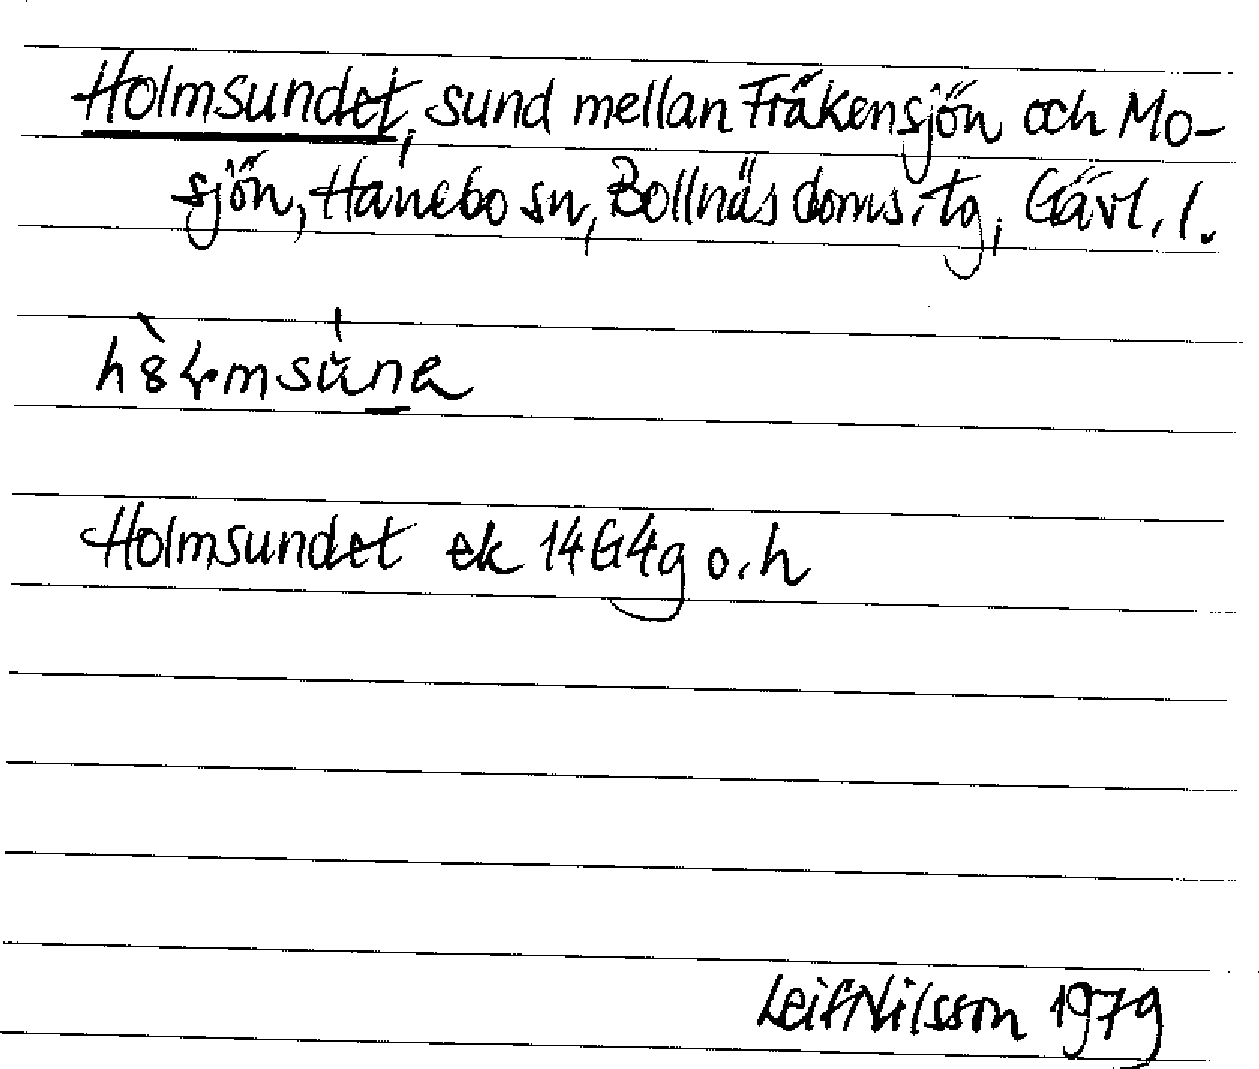 Holmsundet, sund mellan Fräkensjön och Mo-
sjön, Hanebo sn, Bollnäs doms. tg, Gävl. l.
Holmsundet ek 14G4g o. h
Leif Nilsson 1979